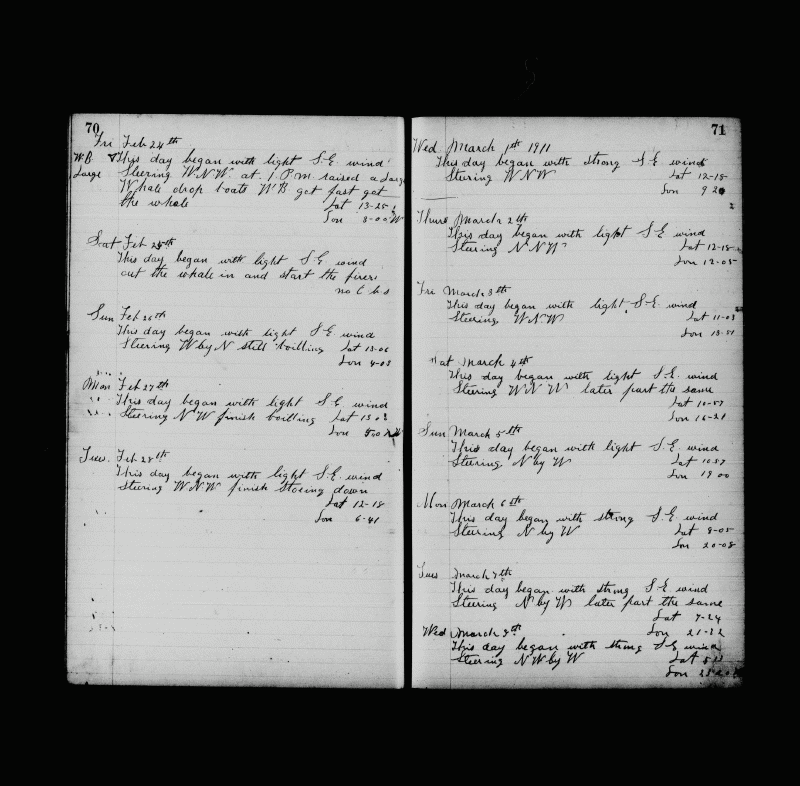 70
Fri Feb 24th
W.B. This day began with light S.E. wind
Large Steering W.N.W. at 1 P.m raised a Large
Whale drop boats W B got fast got
the whale Lat 13-25
Lon 3-00 W
Sat Feb 25th
This day began with light S.E. wind
cut the whale in and start the fires
no O b s
Sun Feb 26th
This day began with light S.E. wind
Steering W by N still boilling Lat 13-06
Lon 4-03
Mon Feb 27th
This day began with light S.E. wind
Steering N W finish boilling Lat
Lon
Tues. Feb 28th
This day began with light S.E. wind
Steering W N W finish stoeing down
Lat 12-18
Lon 6-41
71
Wed March 1st 1911
This day began with strong S.E. wind
Steering W N W Lat 12-18
Lon 9 20
Thurs March 2th
This day began with light S.E wind
Steering N N W Lat 12-18
Lon 12-05
Fri March 3th
This day began with light S.E. wind
Steering W N W Lat 11-03
Lon 13-51
Sat March 4th
This day began with light S.E. wind
Steering W N W later part the same
Lat 10-57
Lon 16-21
Sun March 5th
This day began with light S.E. wind
Steering N by W Lat 10 57
Lon 19 00
Mon March 6th
This day began with strong S.E. wind
Steering N by W Lat 9-05
Lon 20-08
Tues March 7th
This day began with strong S.E. wind
Steering N by W later part the same
Lat 7-24
Lon 21-32
Wed March 8th
This day began with strong S.E. wind
Steering N W by W Lat
Lon